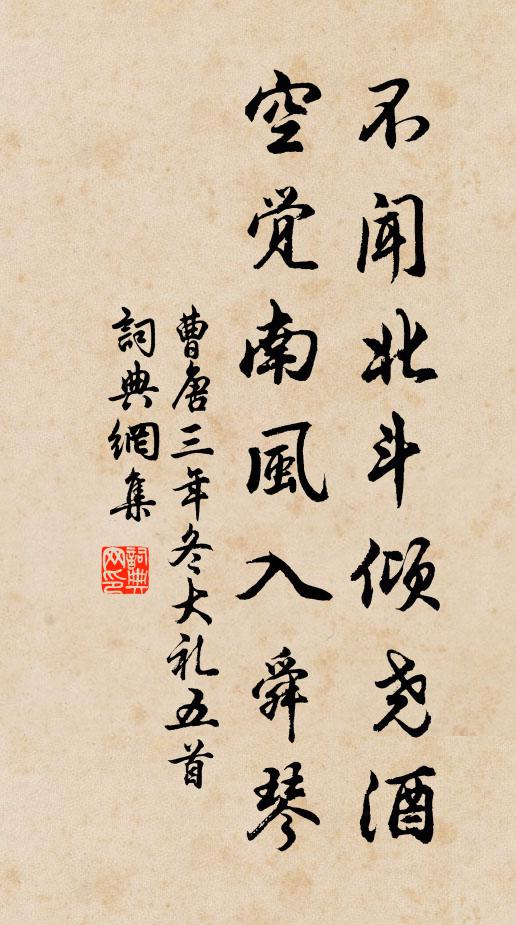 不闻北斗倾尧酒
空觉南風入舜琴
曹唐三年冬大礼五首
詞典網集
詞典网印